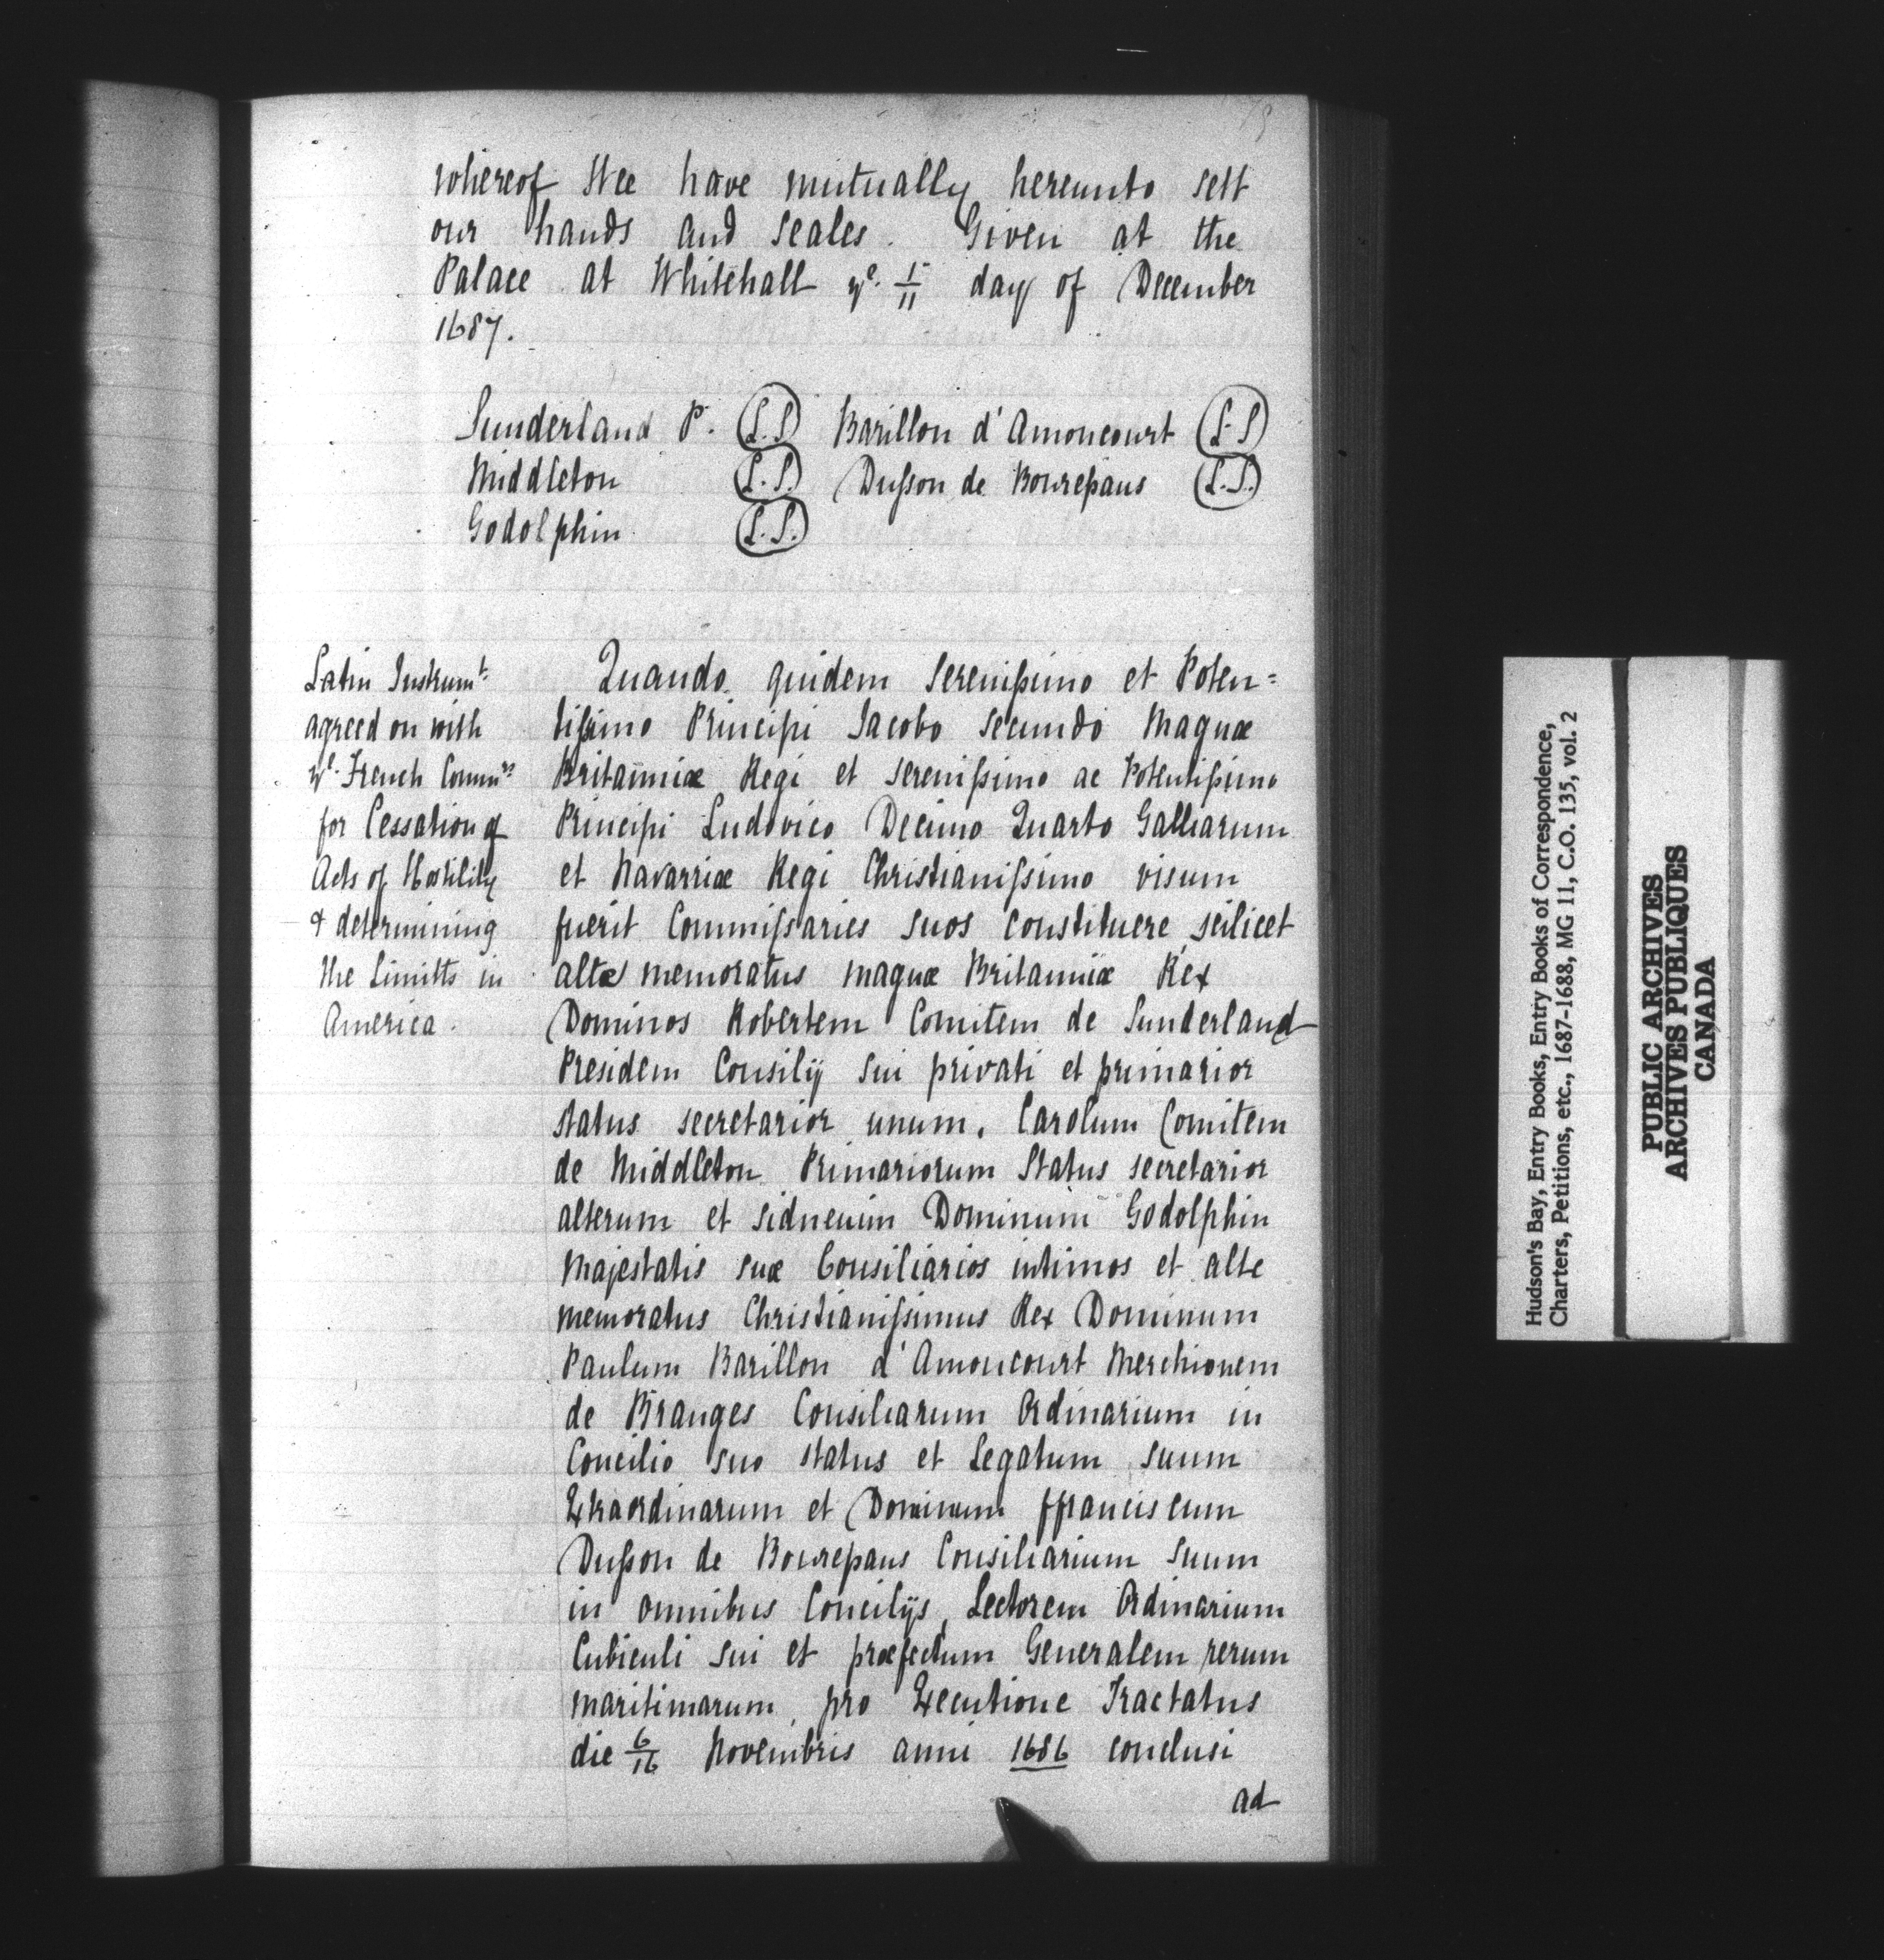 whereof Wee have mutually hereunto sett
our hands and seales. Given at the
Palace at Whitehall yᵉ. 1/11 day of December
1687.
Sunderland P. (L.S) Barillon d'Amoncourt (L.S)
Middleton (L.S.) Duſson de Bonrepaus (L.S.)
Godolphin (L.S.)
Latin Instrumᵗ.
agreed on with
yᵉ. French Commʳˢ
for Cessation of
Acts of Hostility
& determining
the Limitts in
America.
Quando quidem Sereniſsimo et Poten=
tiſsimo Principi Jacobo Secundo Magnæ
Britanniæ Regi et Sereniſsimo ac Potentiſsimo
Principi Ludovico Decimo Quarto Galliarum
et Navarriæ Regi Christianiſsimo visum
fuerit Commiſsaries suos constituere, scilicet
altæ memoratus magnæ Britanniæ Rex
Dominos Robertem Comitem de Sunderland
Presidem Consilij sui privati et primarior
status secretarior unum, Carolum Comitem
de Middleton Primariorum Status secretarior
alterum et Sidneium Dominum Godolphin
Majestatis suæ Consiliarios intimos et alte
memoratus Christianiſsimus Rex Dominum
Paulum Barillon d'Amoncourt Merchionem
de Branges Consiliarum Ordinarium in
Concilio suo status et Legatum suum
Extraordinarum et Dominum ffranciscum
Duſson de Bonrepaus Consiliarium suum
in omnibus Concilijs, Lectorem Ordinarium
Cubiculi sui et præfectum Generalem rerum
maritimarum, pro Executione Tractatus
die 6/16 Novembris anni 1686 conclusi
ad
Hudson's Bay, Entry Books, Entry Books of Correspondence,
Charters, Petitions, etc., 1687-1688, MG 11, C.O. 135, vol. 2
PUBLIC ARCHIVES
ARCHIVES PUBLIQUES
CANADA